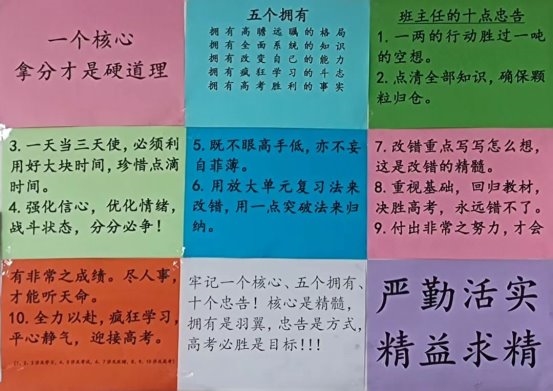 一个核心
拿分才是硬道理
五个拥有
拥有高瞻远瞩的格局
拥有全面系统的知识
拥有改变自己的能力
拥有疯狂学习的斗志
拥有高考胜利的事实
班主任的十点忠告
1. 一两的行动胜过一吨
的空想。
2. 点清全部知识，确保颗
粒归仓。
3. 一天当三天使，必须利
用好大块时间，珍惜点滴
时间。
4. 强化信心，优化情绪，
战斗状态，分分必争！
5. 既不眼高手低，亦不妄
自菲薄。
6. 用放大单元复习法来
改错，用一点突破法来归
纳。
7. 改错重点写写怎么想，
这是改错的精髓。
8. 重视基础，回归教材，
决胜高考，永远错不了。
9. 付出非常之努力，才会
有非常之成绩。尽人事，
才能听天命。
10. 全力以赴，疯狂学习，
平心静气，迎接高考。
牢记一个核心、五个拥有、
十个忠告！核心是精髓，
拥有是羽翼，忠告是方式，
高考必胜是目标！！！
严勤活实
精益求精